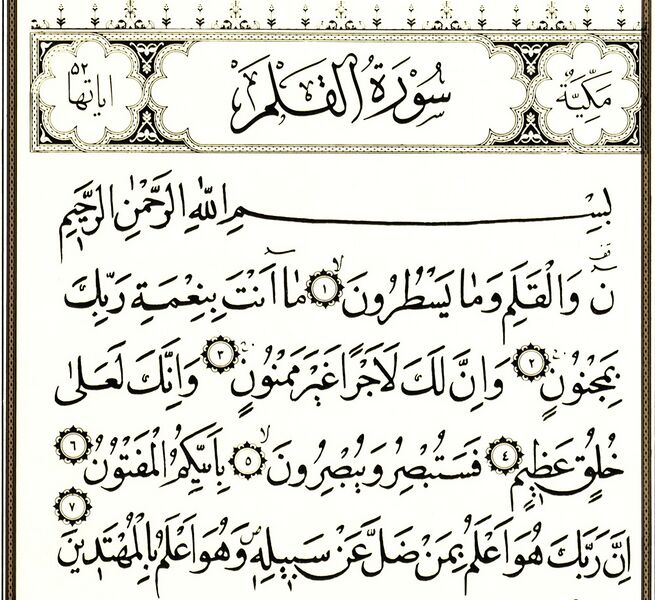 مَكِّيَّةٌ سُورَةُ الْقَلَمِ اياتها ٥٢
بِسْمِ اللّٰهِ الرَّحْمٰنِ الرَّحٖيمِ
نٓ وَالْقَلَمِ وَمَا يَسْطُرُونَ ١ مَٓا اَنْتَ بِنِعْمَةِ رَبِّكَ
بِمَجْنُونٍ ٢ وَاِنَّ لَكَ لَاَجْرًا غَيْرَ مَمْنُونٍ ٣ وَاِنَّكَ لَعَلٰى
خُلُقٍ عَظٖيمٍ ٤ فَسَتُبْصِرُ وَيُبْصِرُونَ ٥ بِاَيِّكُمُ الْمَفْتُونُ ٦
اِنَّ رَبَّكَ هُوَ اَعْلَمُ بِمَنْ ضَلَّ عَنْ سَبٖيلِهٖ وَهُوَ اَعْلَمُ بِالْمُهْتَدٖينَ ٧